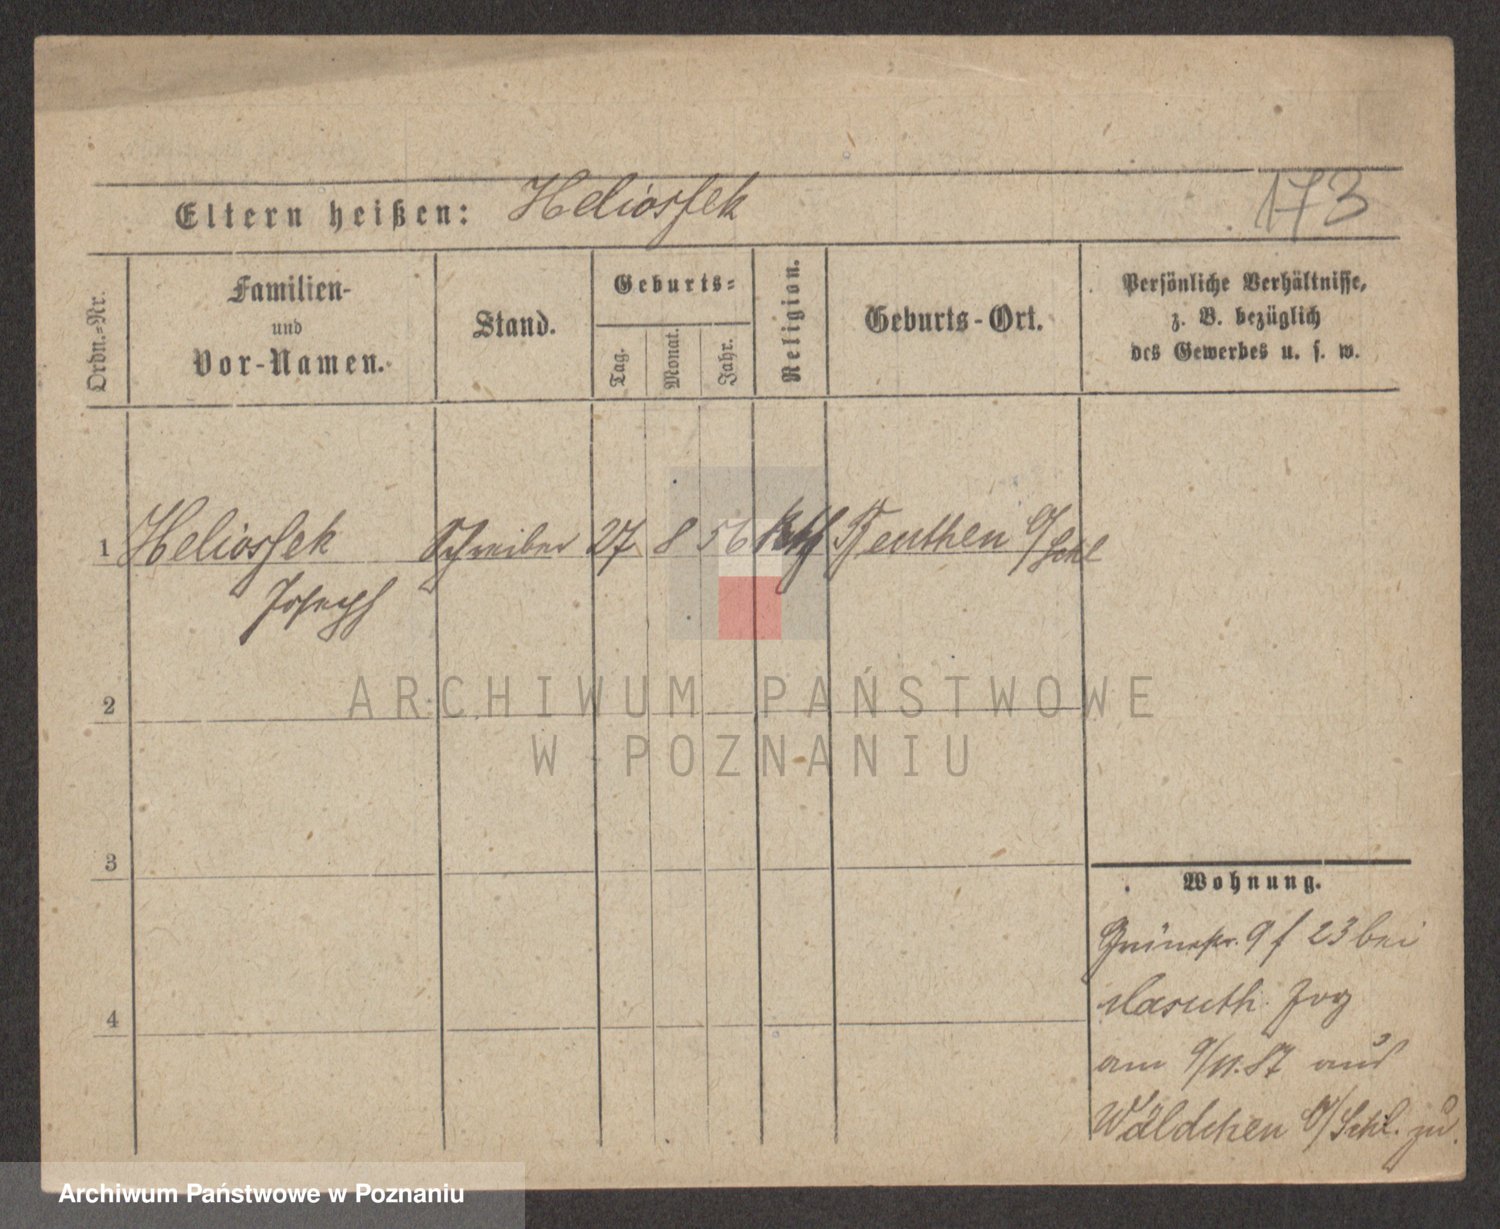 173
Eltern heißen: Heliossek
Ordn.-Nr.
Familien-
und
Vor-Namen.
Stand.
Geburts-
Tag.
Monat.
Jahr.
Religion.
Geburts-Ort.
Persönliche Verhältnisse,
z. B. bezüglich
des Gewerbes u. s. w.
1 Heliossek Schreiber 27 8 56 kth Beuthen O/Schl
Joseph
2
3
4
Wohnung.
Grünestr. 9 f 23 bei
Masuth. Zog
am 9/11.87 aus
Wäldchen O/Schl. zu.
ARCHIWUM PAŃSTWOWE
W POZNANIU
Archiwum Państwowe w Poznaniu